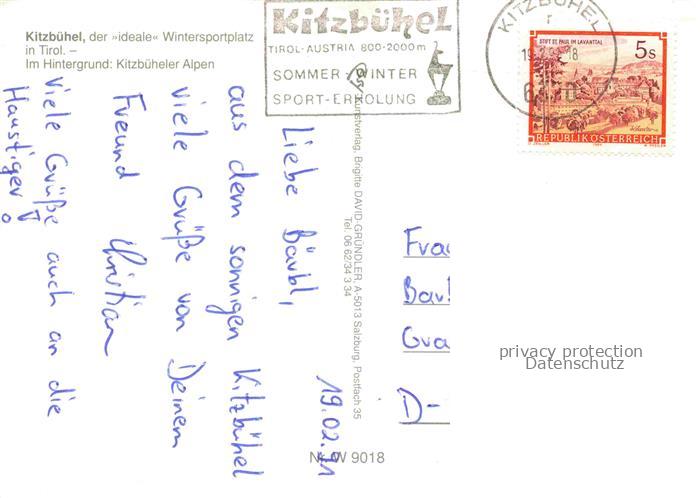 Kitzbühel, der »ideale« Wintersportplatz
in Tirol. –
Im Hintergrund: Kitzbüheler Alpen
Kitzbühel
TIROL-AUSTRIA 800-2000m
SOMMER WINTER
SPORT-ERHOLUNG
KITZBÜHEL
STIFT ST. PAUL IM LAVANTTAL
5s
REPUBLIK ÖSTERREICH
19.02.91
Liebe Bärbl,
aus dem sonnigen Kitzbühel
viele Grüße von Deinem
Freund Christian
Viele Grüße auch an die
Haustiger!
Kunstverlag, Brigitte DAVID-GRÜNDLER, A-5013 Salzburg, Postfach 35
Tel. 06 62/34 3 34
Frau
D-
privacy protection
Datenschutz
Nr. W 9018